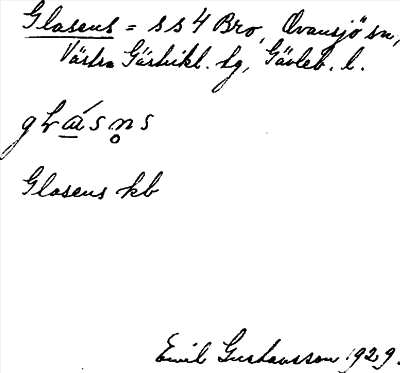 Glasens = s s 4 Bro, Ovansjö sn,
Västra Gästrikl. hg, Gävleb. l.
gla᷇sn̥s
Glasens kb
Emil Gustavsson 1929.